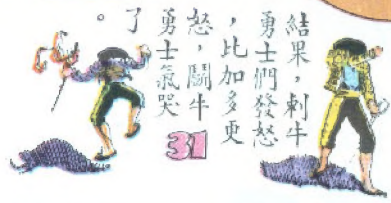 結果，刺牛
勇士們發怒
，比加多更
怒，鬪牛
勇士氣哭
了
。
31